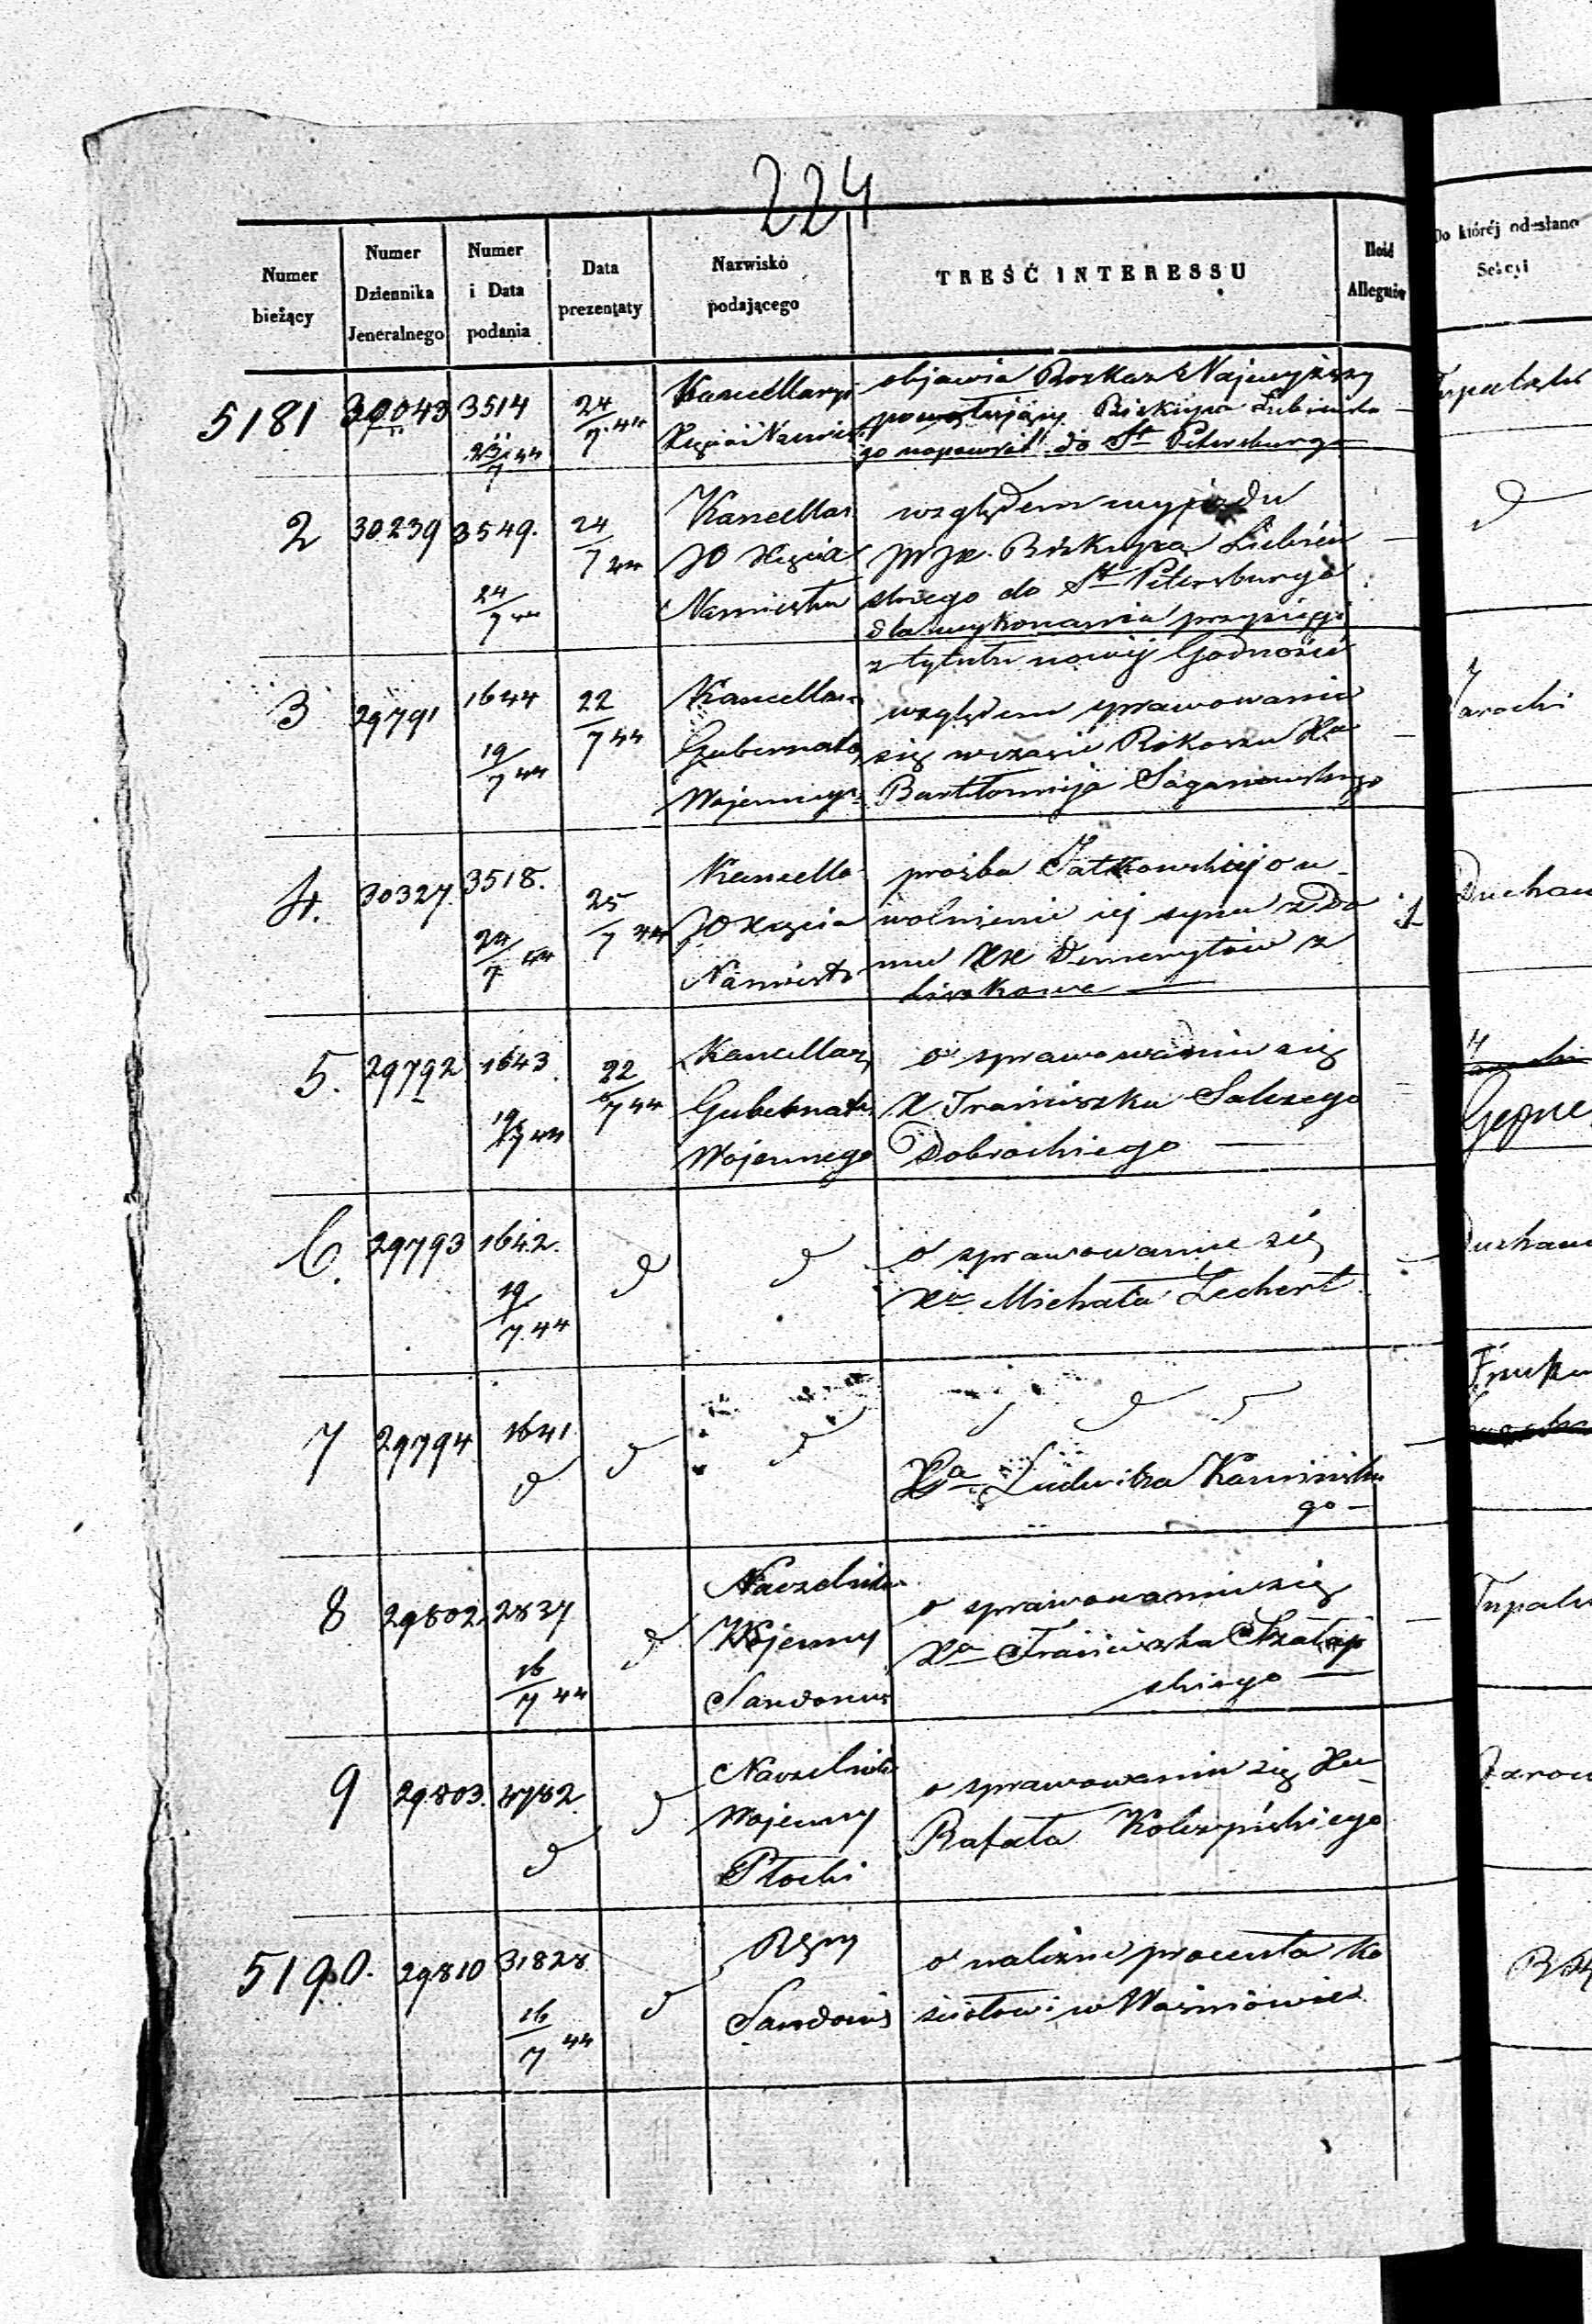 224
Numer bieżący | Numer Dziennika Jeneralnego | Numer i Data podania | Data prezentaty | Nazwisko podającego | TREŚĆ INTERESSU | Ilość Allegatów | Do któréj odesłano Sekcyi
5181 | 30043 | 3514 23/7 44 | 24/7 44 | Kancellarya Xięcia | objawia Rozkaz Najwyższy
powołujący Biskupa
go napowrót do St Petersburga
2 | 30239 | 3549. 24/7 44 | 24/7 44 | Kancellar JO Xięcia Namiestn | względem wyjazdu
JW JX. Biskupa Łubień
skiego do St Petersburga
dla wykonania przysięgi
z tytułu nowéj Godności
3 | 29791 | 1644 19/7 44 | 22/7 44 | Kancellar Gubernato Wojennego | względem sprawowania
się wczasie Rokoszu Xa
Bartłomieja Saganowskiego | Jarocki
4. | 30327. | 3518. 24/7 44 | 25/7 44 | Kancella JO Xięcia Namiest | prośba Jatkowskiej o u
wolnienie iej syna z Do
mu XX Demerytów z
Liszkowa — | 1 | Duchow
5. | 29792 | 1643 19/7 44 | 22/7 44 | Kancellar Gubernato Wojennego | o sprawowaniu się
X Franciszka Salezego
Dobrockiego —
6. | 29793 | 1642. 19/7 44 | d | d | o sprawowanie się
Xa Michała Lechert
7 | 29794 | 1641 d | d | d | d
Xa Ludwika Kamińskie
go —
8 | 29802. | 2837 16/7 44 | d | Naczelnik Wojenny Sandomir | o sprawowaniu się
Xa Franciszka
skiego —
9 | 29803. | 4782 d | d | Naczelnik Wojenny Płocki | o sprawowaniu się Xa
Rafała Kolczyńskiego
5190. | 29810 | 31828 16/7 44 | d | Sandomi | o procenta ko
ściołowi w Waśniowie